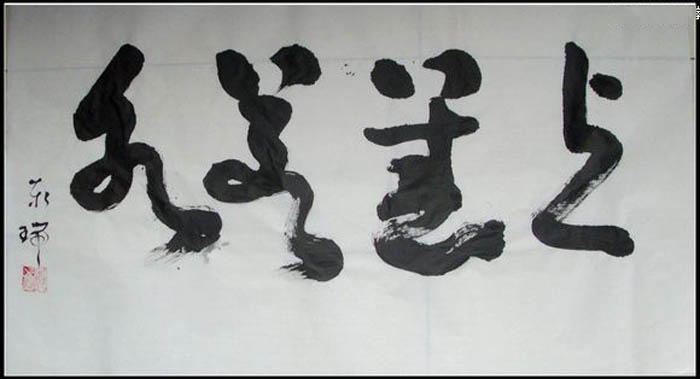 上善若水
东瑞